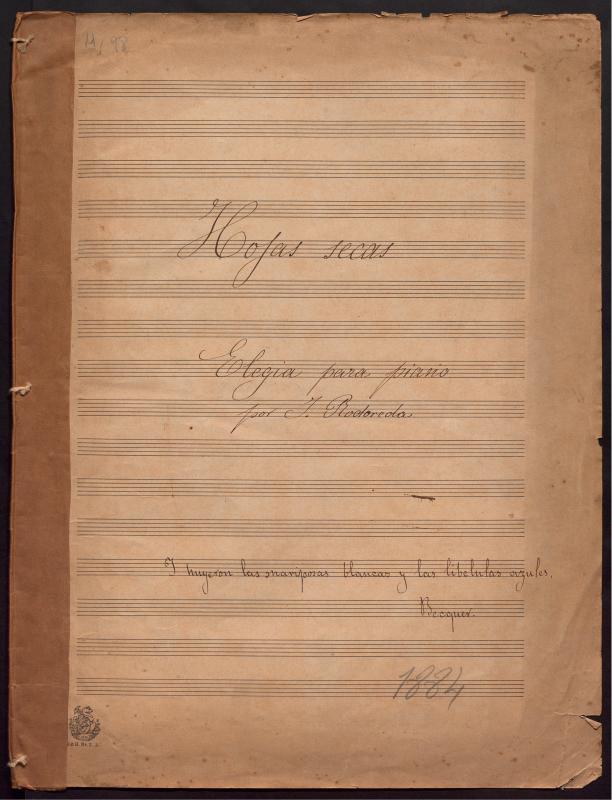 Hojas secas
Elegia para piano
por J. Rodoreda
I huyeron las mariposas blancas y las libelulas azules.
Becquer.
1884